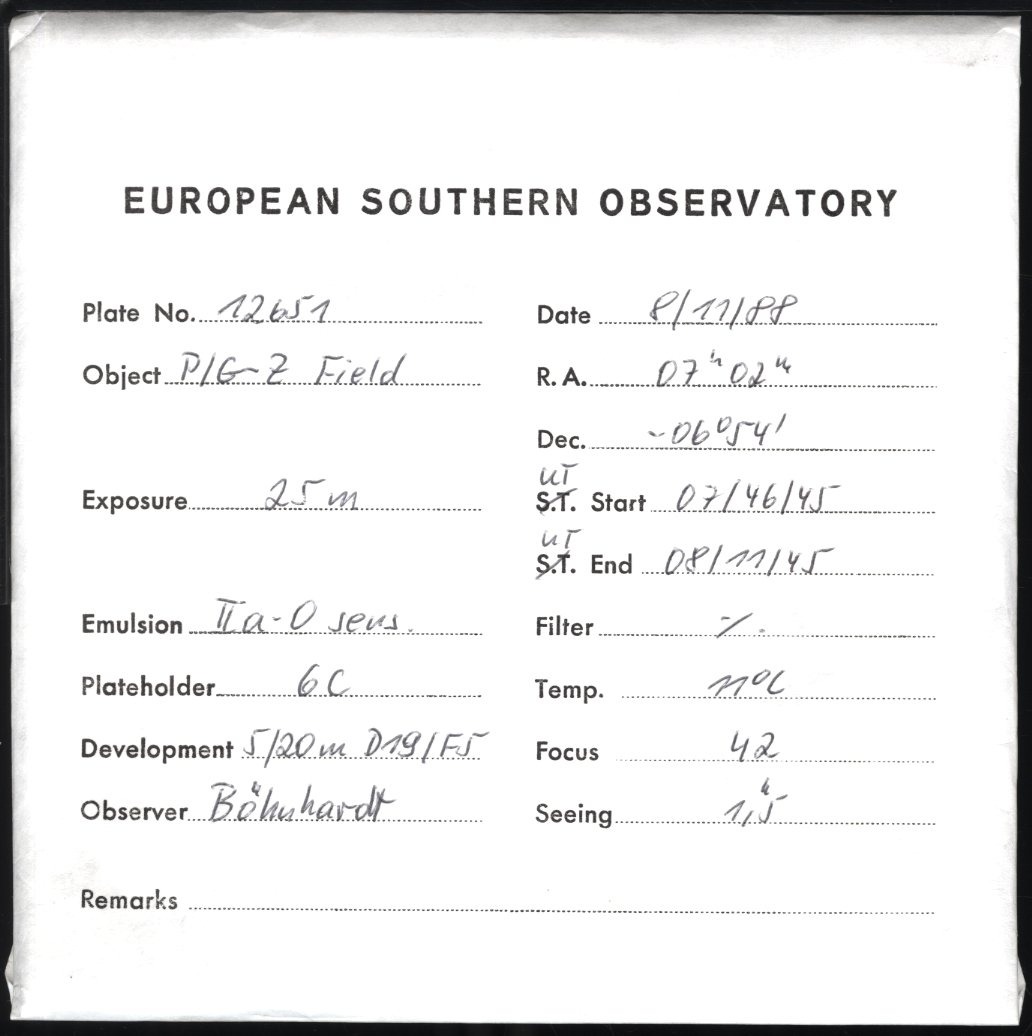 EUROPEAN SOUTHERN OBSERVATORY
Plate No. 12651 Date 8/11/88
Object P/G-Z Field R.A. 07h 02m
Dec. -06°54'
UT
Exposure 25m S.T. Start 07/46/45
UT
S.T. End 08/11/45
Emulsion IIa-O sens. Filter -/.
Plateholder 6C Temp. 11°C
Development 5/20m D19/F5 Focus 42
Observer Böhnhardt Seeing 1,"5
Remarks